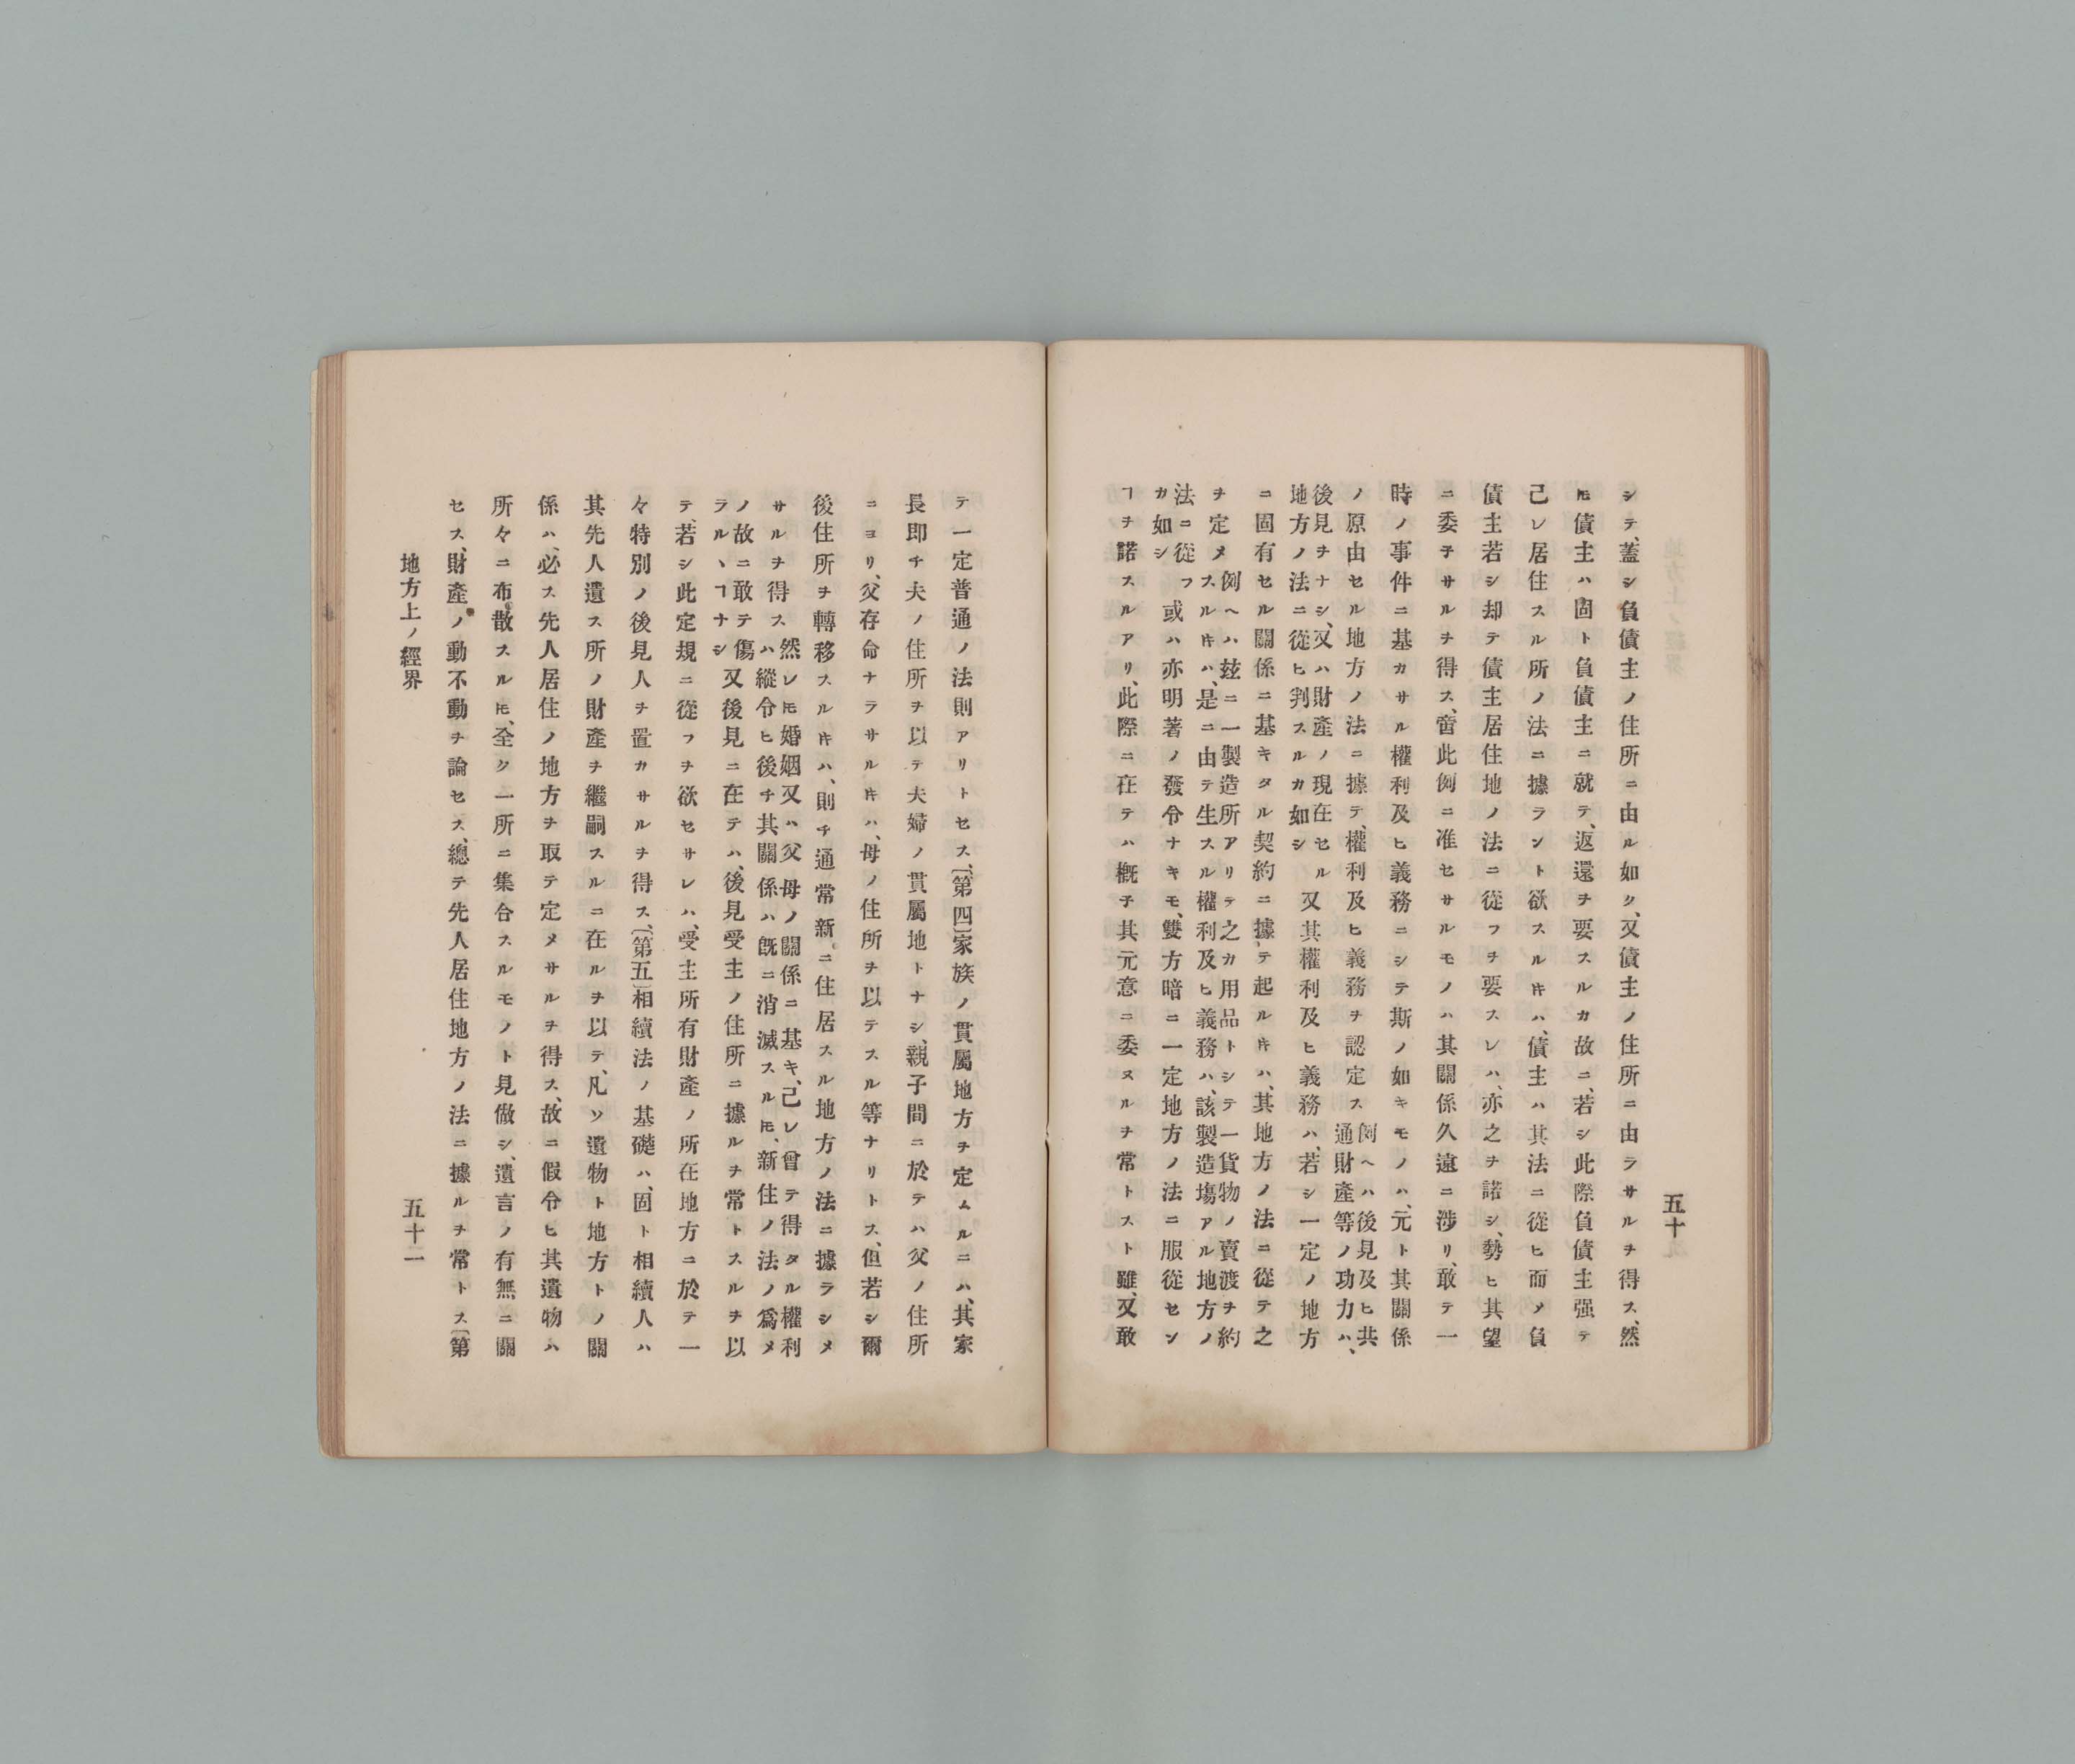 五十
シテ、蓋シ負債主ノ住所ニ由ル如ク、又債主ノ住所ニ由ラサルヲ得ス、然
𪜈債主ハ固ト負債主ニ就テ、返還ヲ要スルカ故ニ、若シ此際負債主强テ
己レ居住スル所ノ法ニ據ラント欲スルキハ、債主ハ其法ニ從ヒ而メ負
債主若シ却テ債主居住地ノ法ニ從フヲ要スレハ、亦之ヲ諾シ、勢ヒ其望
ニ委子サルヲ得ス、啻此例ニ准セサルモノハ其關係久遠ニ涉リ、敢テ一
時ノ事件ニ基カサル權利及ヒ義務ニシテ斯ノ如キモノハ、元ト其關係
ノ原由セル地方ノ法ニ據テ、權利及ヒ義務ヲ認定ス例ヘハ後見及ヒ共
通財產等ノ功力ハ、
後見ヲナシ、又ハ財產ノ現在セル
地方ノ法ニ從ヒ判スルカ如シ又其權利及ヒ義務ハ、若シ一定ノ地方
ニ固有セル關係ニ基キタル契約ニ據テ起ルキハ、其地方ノ法ニ從テ之
ヲ定メ例ヘハ玆ニ一製造所アリテ之カ用品トシテ一貨物ノ賣渡ヲ約
スルキハ、是ニ由テ生スル權利及ヒ義務ハ、該製造塲アル地方ノ
法ニ從フ
カ如シ或ハ亦明著ノ發令ナキモ、雙方暗ニ一定地方ノ法ニ服從セン
ヿヲ諾スルアリ、此際ニ在テハ槪子其元意ニ委ヌルヲ常トスト雖、又敢
テ一定普通ノ法則アリトセス、〔第四〕家族ノ貫屬地方ヲ定ムルニハ、其家
長即チ夫ノ住所ヲ以テ夫婦ノ貫屬地トナシ、親子間ニ於テハ父ノ住所
ニヨリ、父存命ナラサルキハ、母ノ住所ヲ以テスル等ナリトス、但若シ爾
後住所ヲ轉移スルキハ、則チ通常新ニ住居スル地方ノ法ニ據ラシメ
サルヲ得ス然レ𪜈婚姻又ハ父母ノ關係ニ基キ、己レ曾テ得タル權利
ハ縱令ヒ後チ其關係ハ旣ニ消滅スル𪜈、新住ノ法ノ爲メ
ノ故ニ敢テ傷
ラルヽヿナシ又後見ニ在テハ、後見受主ノ住所ニ據ルヲ常トスルヲ以
テ、若シ此定規ニ從フヲ欲セサレハ、受主所有財產ノ所在地方ニ於テ一
々特別ノ後見人ヲ置カサルヲ得ス、〔第五〕相續法ノ基礎ハ、固ト相續人ハ
其先人遺ス所ノ財產ヲ繼嗣スルニ在ルヲ以テ、凡ソ遺物ト地方トノ關
係ハ、必ス先人居住ノ地方ヲ取テ定メサルヲ得ス、故ニ假令ヒ其遺物ハ
所々ニ布散スル𪜈、全ク一所ニ集合スルモノト見做シ、遺言ノ有無ニ關
セス、財產ノ動不動ヲ論セス、總テ先人居住地方ノ法ニ據ルヲ常トス〔第
地方上ノ經界
五十一